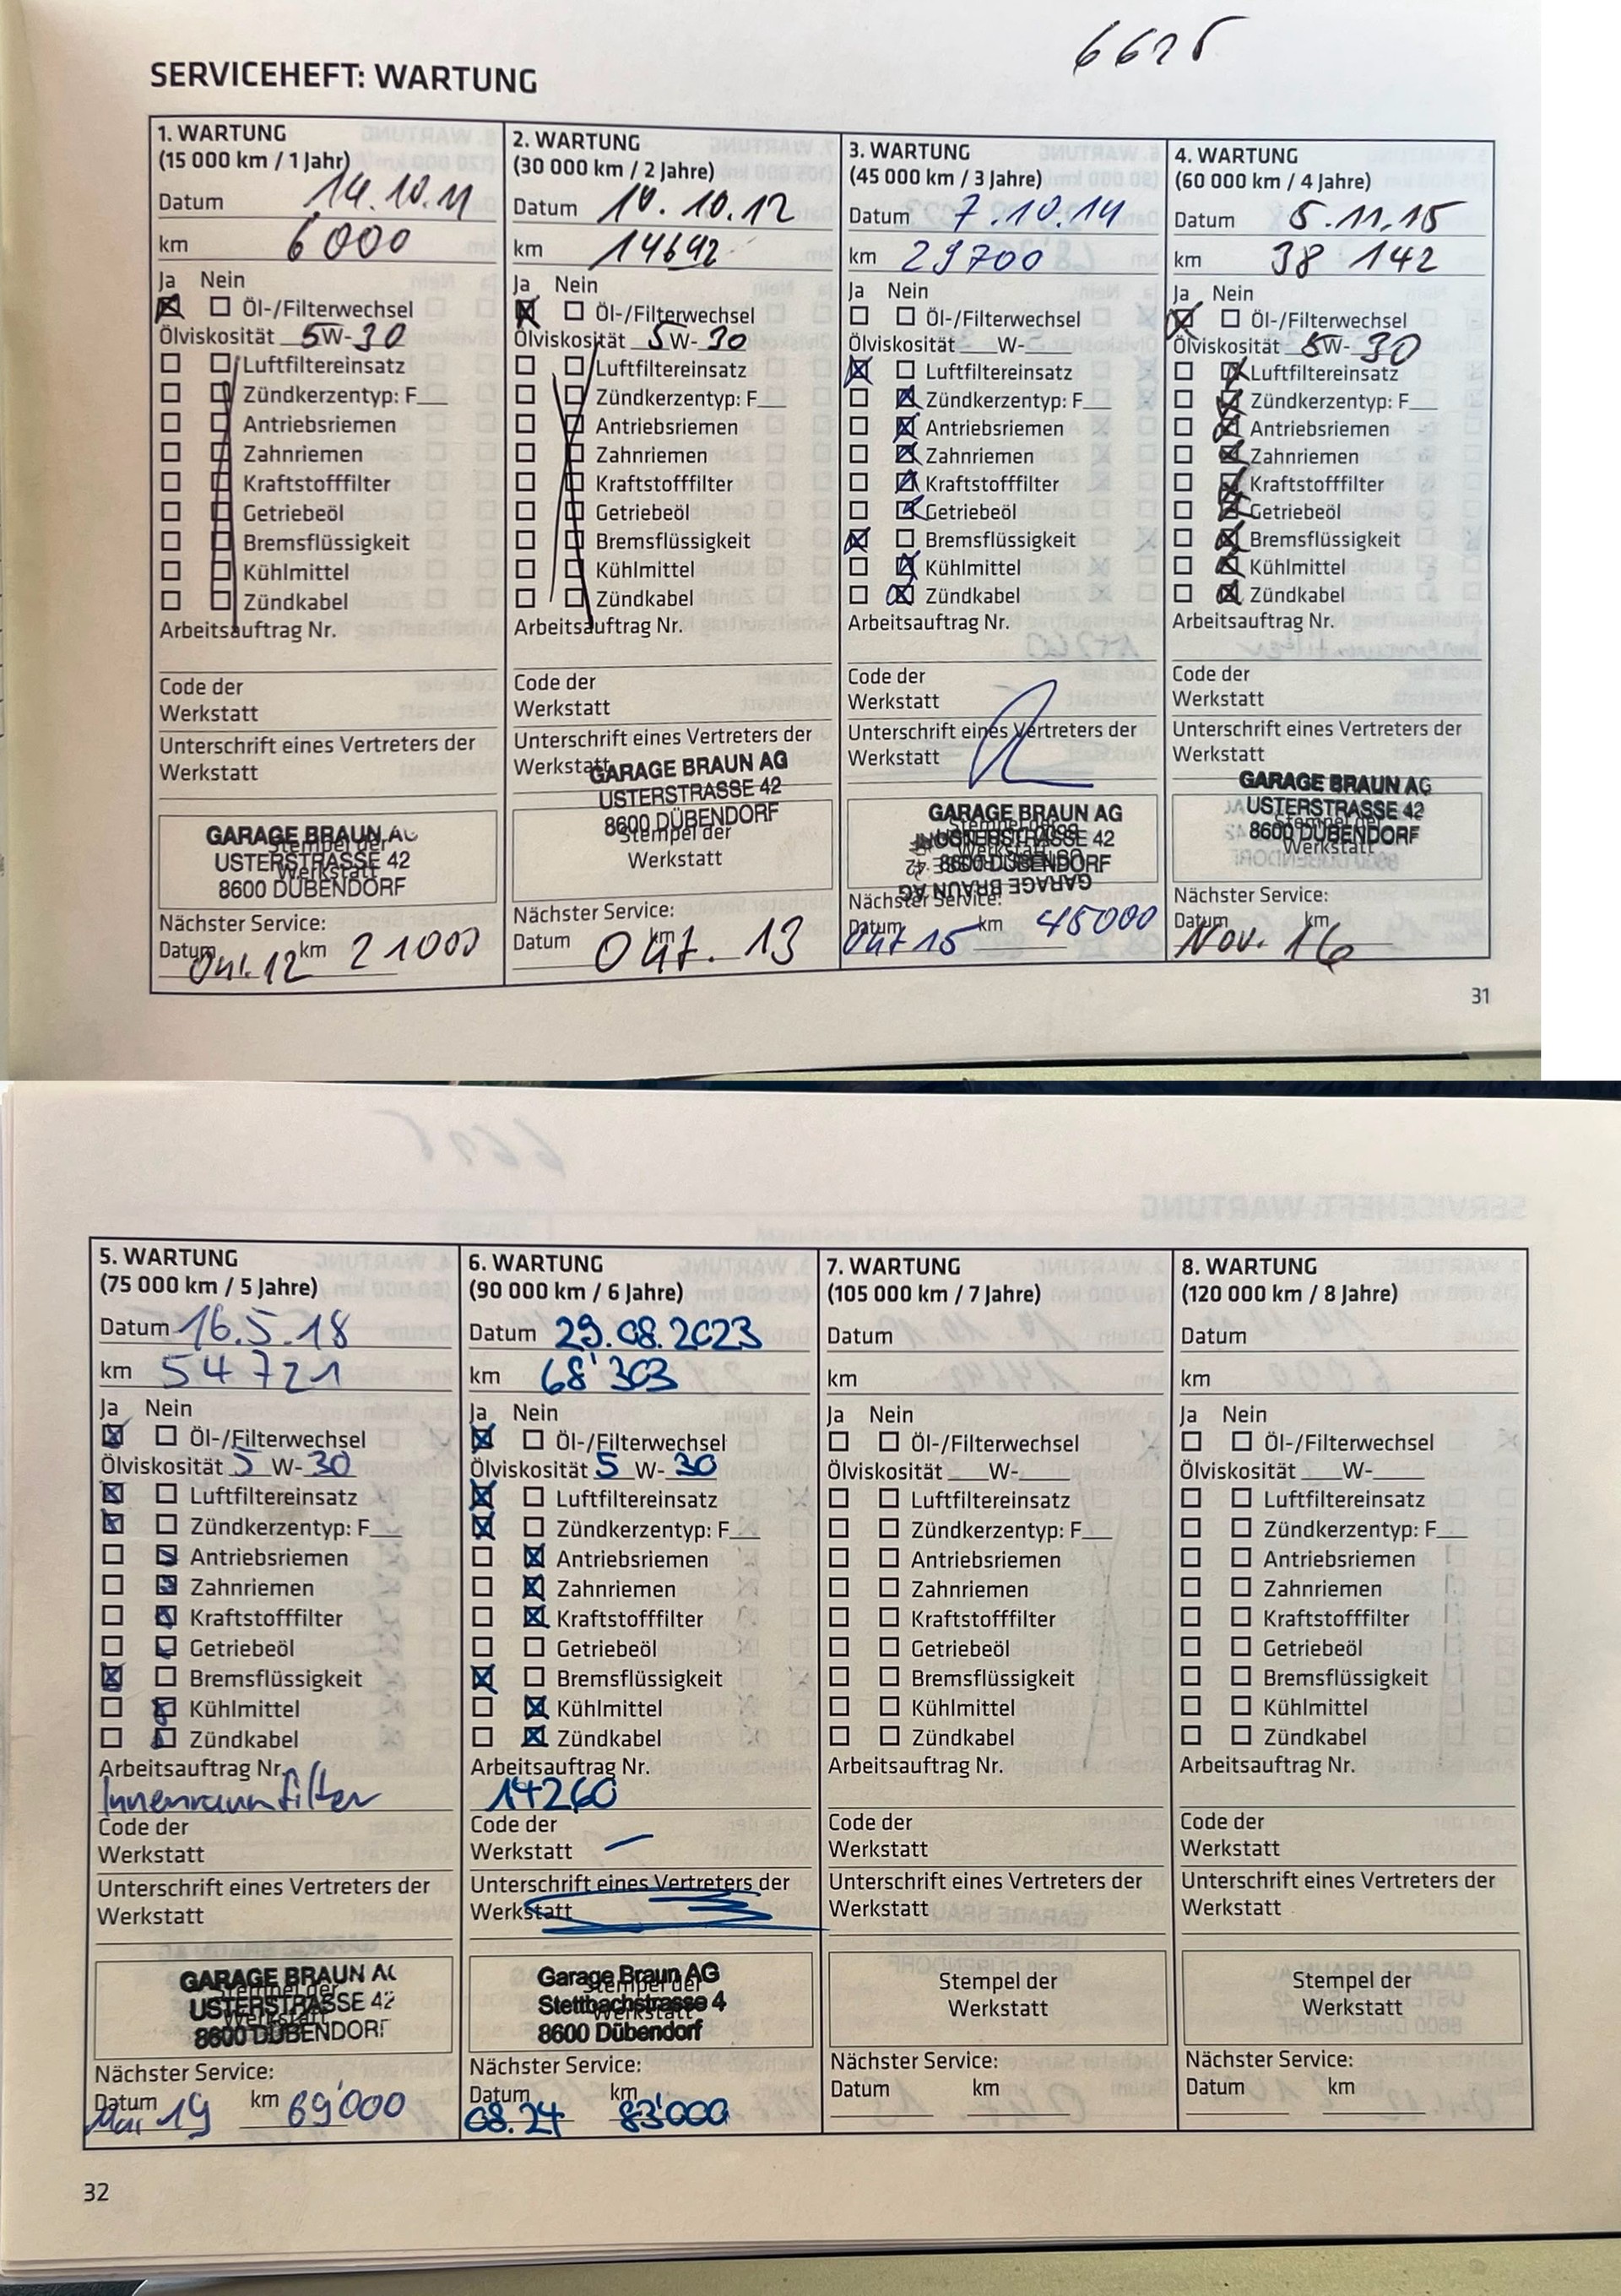 6625
SERVICEHEFT: WARTUNG
1. WARTUNG
(15 000 km / 1 Jahr)
Datum 14.10.11
km 6000
Ja Nein
Öl-/Filterwechsel
Ölviskosität 5W-30
Luftfiltereinsatz
Zündkerzentyp: F
Antriebsriemen
Zahnriemen
Kraftstofffilter
Getriebeöl
Bremsflüssigkeit
Kühlmittel
Zündkabel
Arbeitsauftrag Nr.
Code der
Werkstatt
Unterschrift eines Vertreters der
Werkstatt
GARAGE BRAUN AG
Stempel der
USTERSTRASSE 42
Werkstatt
8600 DÜBENDORF
Nächster Service:
Datum Okt.12 km 21000
2. WARTUNG
(30 000 km / 2 Jahre)
Datum 10.10.12
km 14692
Ja Nein
Öl-/Filterwechsel
Ölviskosität 5W-30
Luftfiltereinsatz
Zündkerzentyp: F
Antriebsriemen
Zahnriemen
Kraftstofffilter
Getriebeöl
Bremsflüssigkeit
Kühlmittel
Zündkabel
Arbeitsauftrag Nr.
Code der
Werkstatt
Unterschrift eines Vertreters der
Werkstatt
GARAGE BRAUN AG
USTERSTRASSE 42
8600 DÜBENDORF
Stempel der
Werkstatt
Nächster Service:
Datum km Okt. 13
3. WARTUNG
(45 000 km / 3 Jahre)
Datum 7.10.14
km 29700
Ja Nein
Öl-/Filterwechsel
Ölviskosität W-
Luftfiltereinsatz
Zündkerzentyp: F
Antriebsriemen
Zahnriemen
Kraftstofffilter
Getriebeöl
Bremsflüssigkeit
Kühlmittel
Zündkabel
Arbeitsauftrag Nr.
Code der
Werkstatt
Unterschrift eines Vertreters der
Werkstatt
GARAGE BRAUN AG
Stempel der
USTERSTRASSE 42
Werkstatt
8600 DÜBENDORF
GARAGE BRAUN AG
Nächster Service:
Datum Okt 15 km 45000
4. WARTUNG
(60 000 km / 4 Jahre)
Datum 5.11.15
km 38 142
Ja Nein
Öl-/Filterwechsel
Ölviskosität 5W-30
Luftfiltereinsatz
Zündkerzentyp: F
Antriebsriemen
Zahnriemen
Kraftstofffilter
Getriebeöl
Bremsflüssigkeit
Kühlmittel
Zündkabel
Arbeitsauftrag Nr.
Code der
Werkstatt
Unterschrift eines Vertreters der
Werkstatt
GARAGE BRAUN AG
USTERSTRASSE 42
Stempel der
8600 DÜBENDORF
Werkstatt
Nächster Service:
Datum km Nov. 16
31
5. WARTUNG
(75 000 km / 5 Jahre)
Datum 16.5.18
km 54721
Ja Nein
Öl-/Filterwechsel
Ölviskosität 5 W-30
Luftfiltereinsatz
Zündkerzentyp: F
Antriebsriemen
Zahnriemen
Kraftstofffilter
Getriebeöl
Bremsflüssigkeit
Kühlmittel
Zündkabel
Arbeitsauftrag Nr.
Innenraumfilter
Code der
Werkstatt
Unterschrift eines Vertreters der
Werkstatt
GARAGE BRAUN AG
Stempel der
USTERSTRASSE 42
Werkstatt
8600 DÜBENDORF
Nächster Service:
Datum Mai 19 km 69'000
6. WARTUNG
(90 000 km / 6 Jahre)
Datum 29.08.2023
km 68'303
Ja Nein
Öl-/Filterwechsel
Ölviskosität 5 W-30
Luftfiltereinsatz
Zündkerzentyp: F
Antriebsriemen
Zahnriemen
Kraftstofffilter
Getriebeöl
Bremsflüssigkeit
Kühlmittel
Zündkabel
Arbeitsauftrag Nr.
17260
Code der
Werkstatt
Unterschrift eines Vertreters der
Werkstatt
Garage Braun AG
Stempel der
Stettbachstrasse 4
Werkstatt
8600 Dübendorf
Nächster Service:
Datum km
08.24 83'000
7. WARTUNG
(105 000 km / 7 Jahre)
Datum
km
Ja Nein
Öl-/Filterwechsel
Ölviskosität W-
Luftfiltereinsatz
Zündkerzentyp: F
Antriebsriemen
Zahnriemen
Kraftstofffilter
Getriebeöl
Bremsflüssigkeit
Kühlmittel
Zündkabel
Arbeitsauftrag Nr.
Code der
Werkstatt
Unterschrift eines Vertreters der
Werkstatt
Stempel der
Werkstatt
Nächster Service:
Datum km
8. WARTUNG
(120 000 km / 8 Jahre)
Datum
km
Ja Nein
Öl-/Filterwechsel
Ölviskosität W-
Luftfiltereinsatz
Zündkerzentyp: F
Antriebsriemen
Zahnriemen
Kraftstofffilter
Getriebeöl
Bremsflüssigkeit
Kühlmittel
Zündkabel
Arbeitsauftrag Nr.
Code der
Werkstatt
Unterschrift eines Vertreters der
Werkstatt
Stempel der
Werkstatt
Nächster Service:
Datum km
32